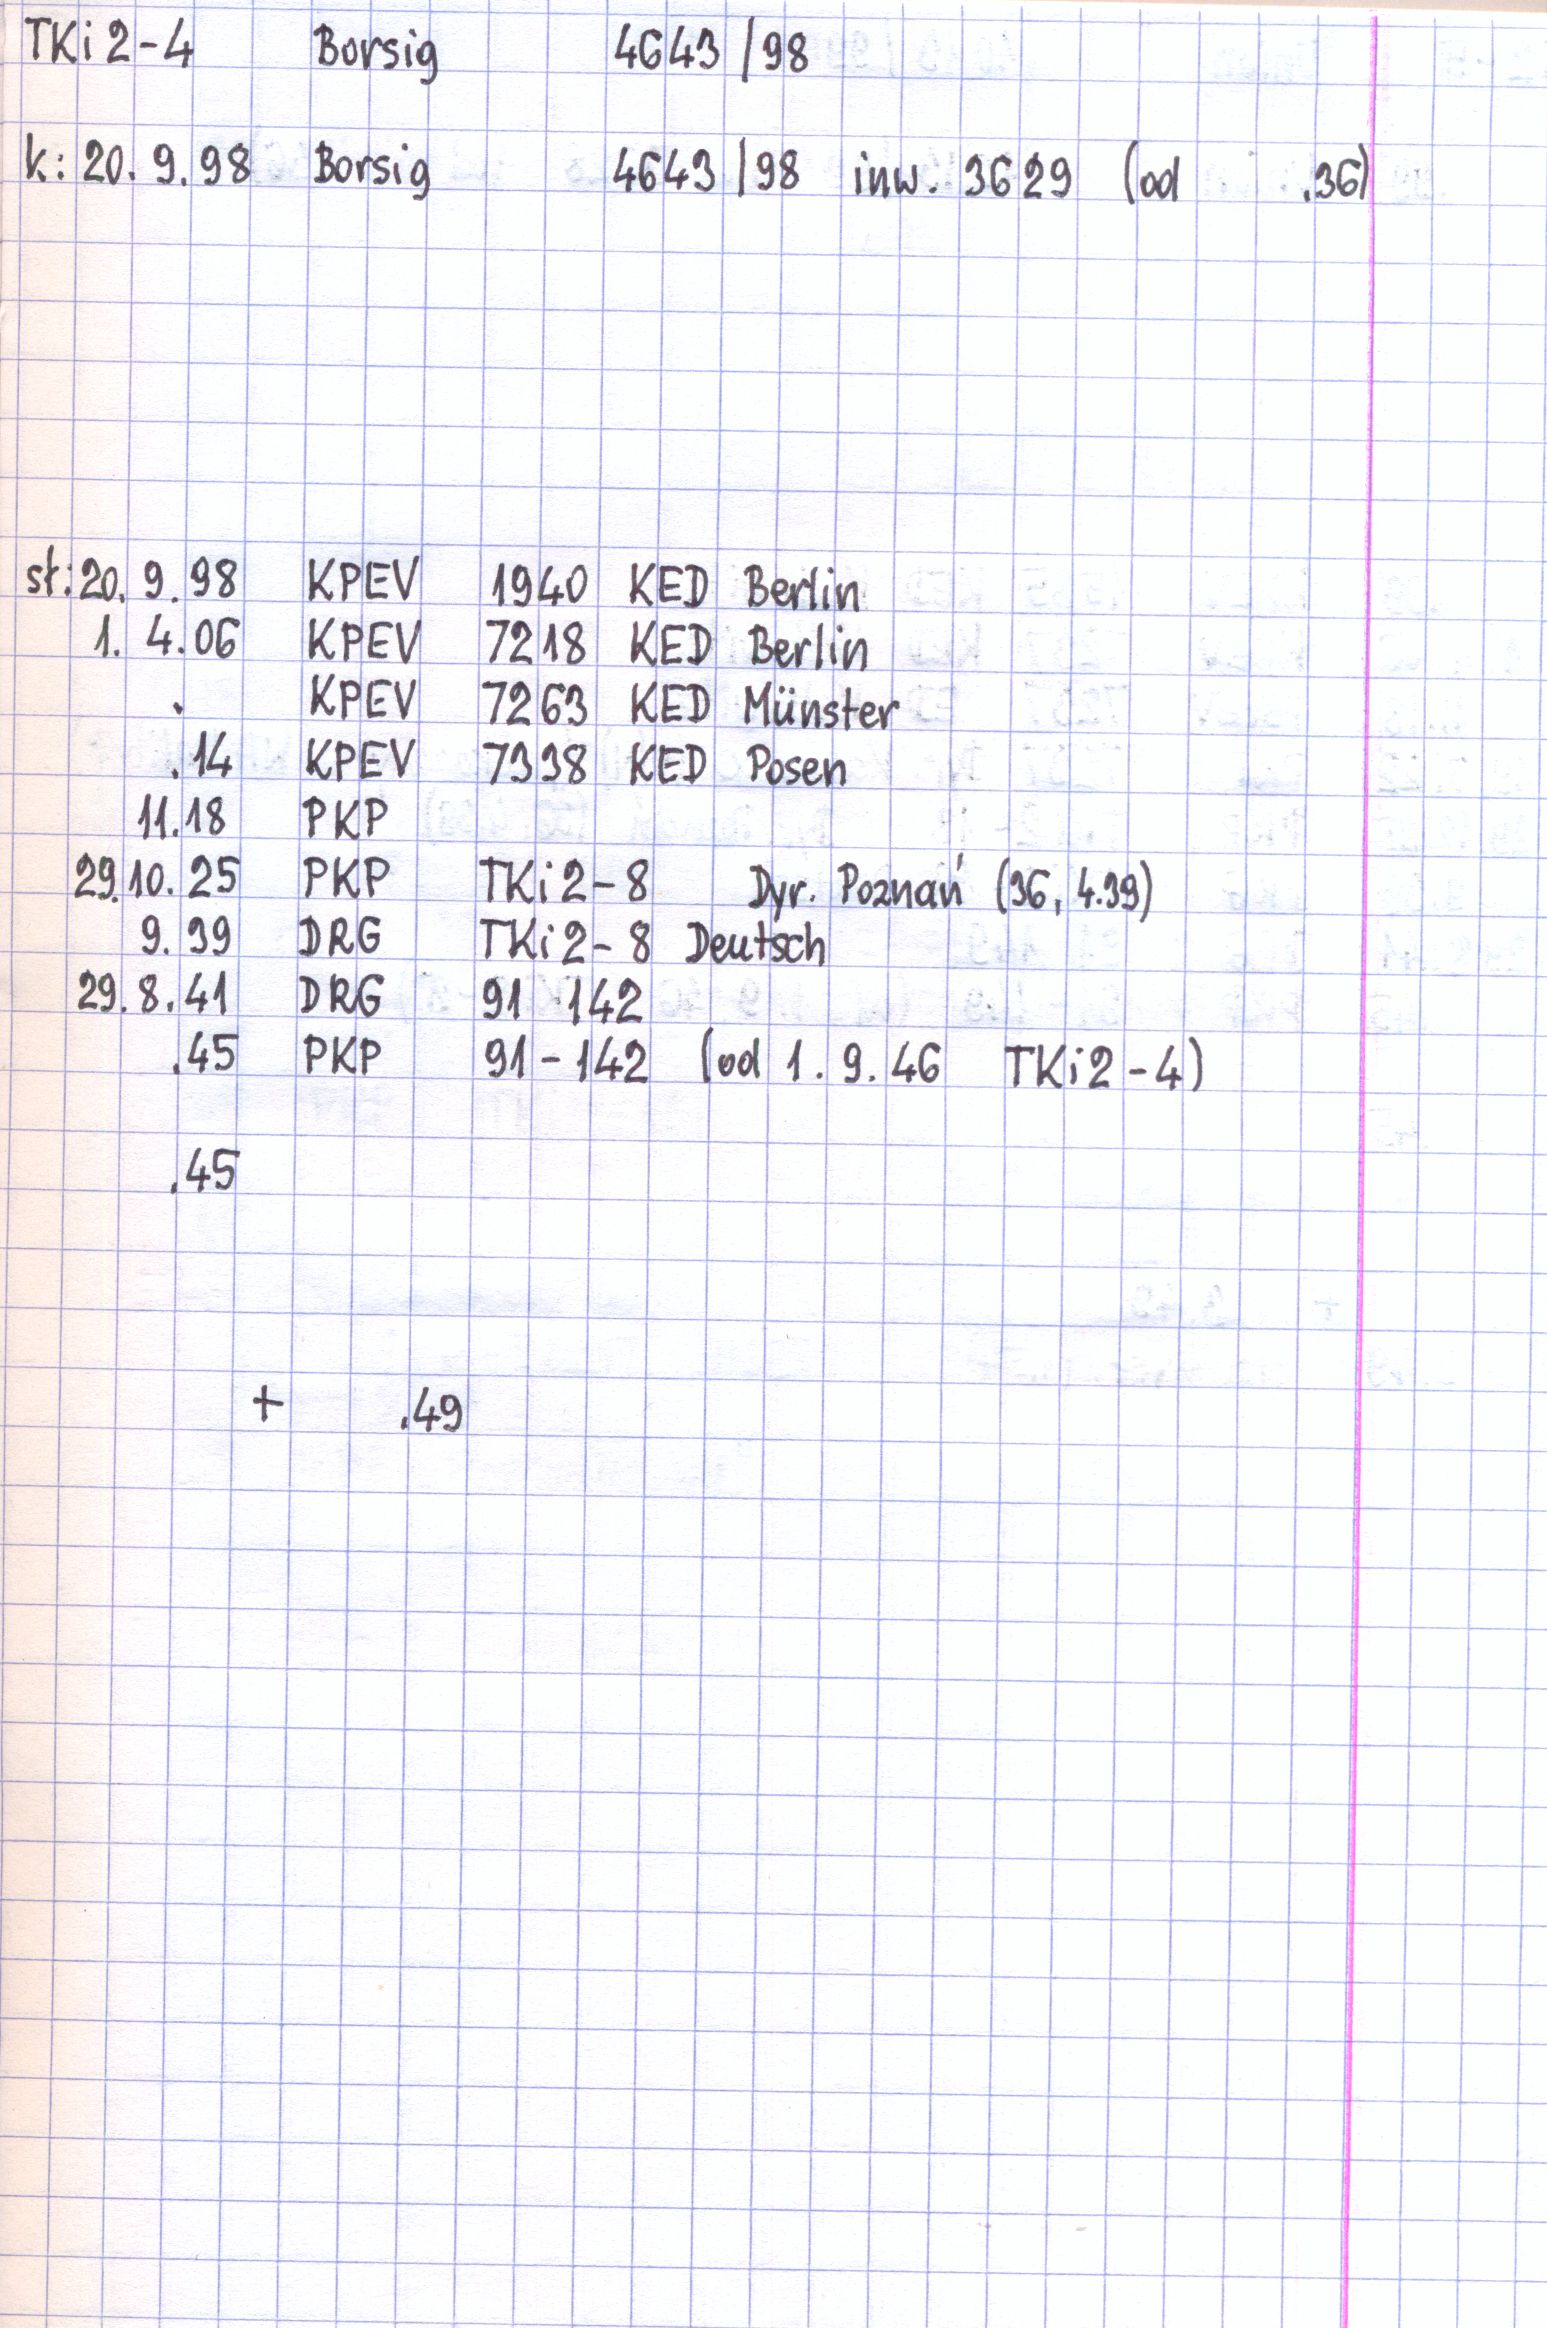 TKi2-4 Borsig 4643/98
k: 20.9.98 Borsig 4643/98 inw. 3629 (od .36)
st: 20.9.98 KPEV 1940 KED Berlin
1.4.06 KPEV 7218 KED Berlin
. KPEV 7263 KED Münster
.14 KPEV 7338 KED Posen
11.18 PKP
29.10.25 PKP TKi2-8 Dyr. Poznań (36, 4.39)
9.39 DRG TKi2-8 Deutsch
29.8.41 DRG 91 142
.45 PKP 91-142 (od 1.9.46 TKi2-4)
.45
+ .49